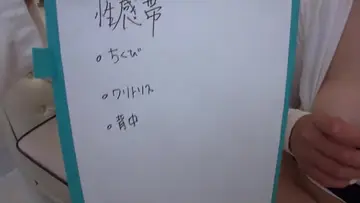 性感帯
・ちくび
・クリトリス
・背中